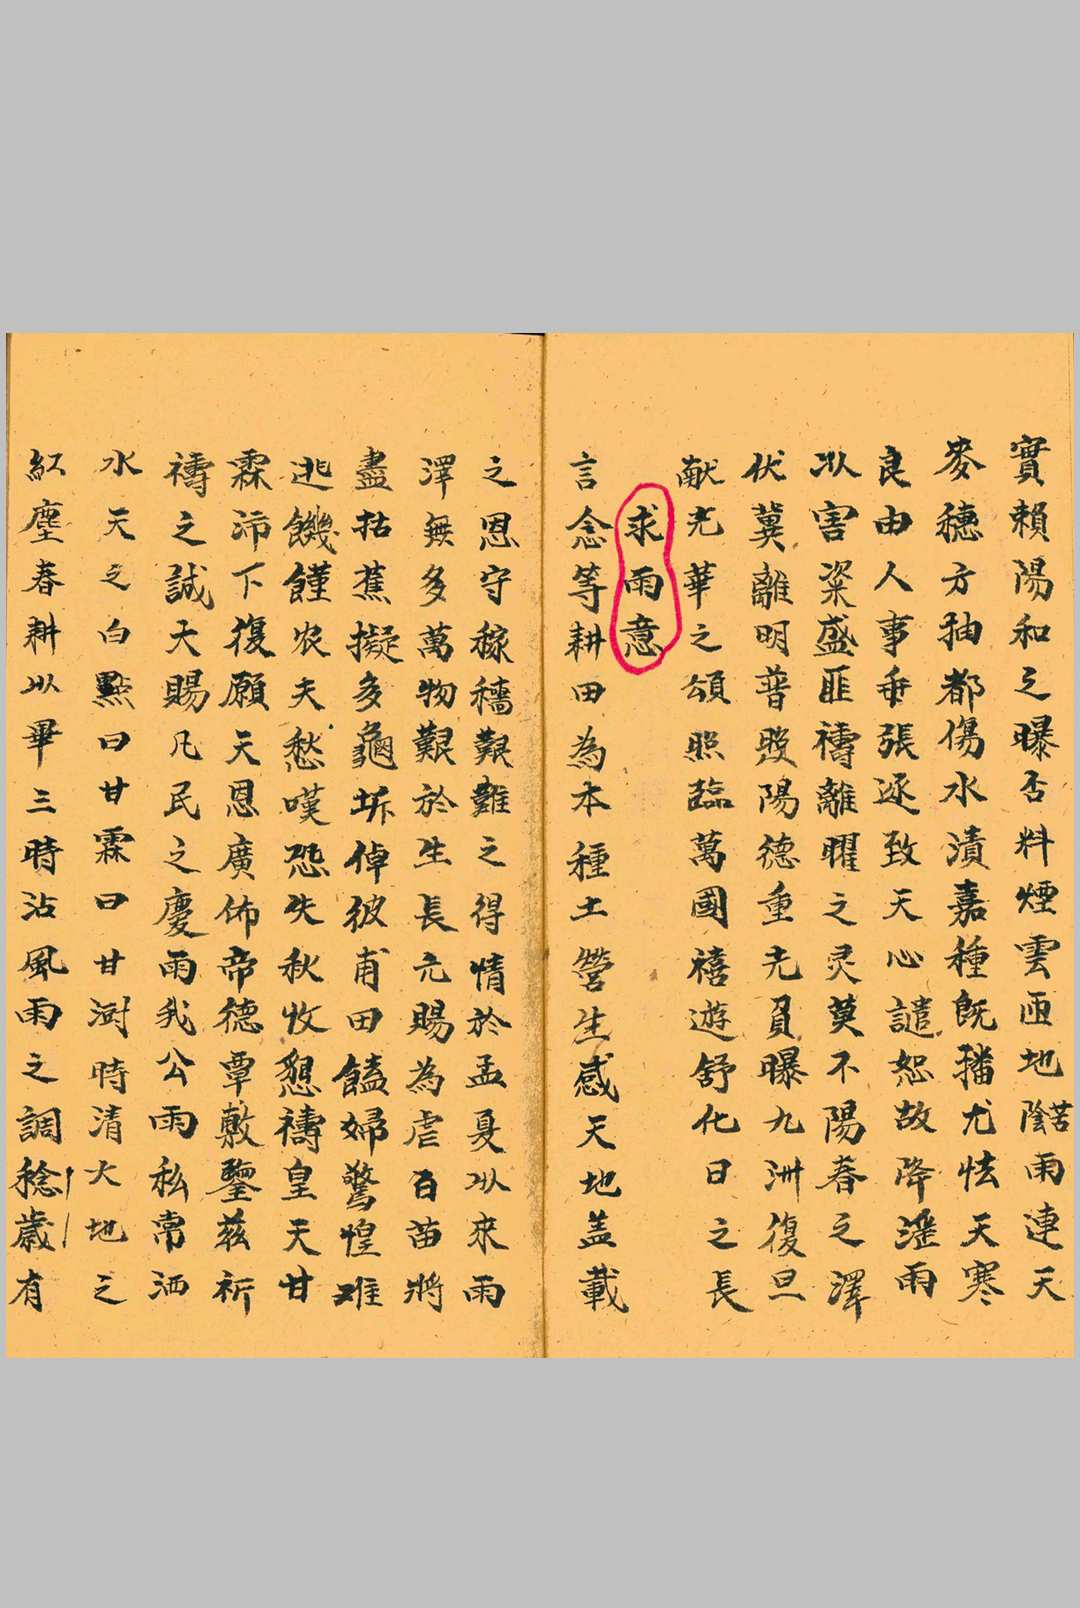 實賴陽和之曝否料煙雲匝地陰苦雨連天
麥穗方抽都傷水漬嘉種既播尤怯天寒
良由人事乖張逐致天心譴恕故降滛雨
以害粢盛匪禱離曜之灵莫不陽春之澤
伏冀離明普照陽德重光負曝九洲復旦
献光華之頌照臨萬國禧遊舒化日之長
求雨意
言念等耕田為本種土營生感天地盖載
之恩守稼穡艱難之得情於孟夏以來雨
澤無多萬物艱於生長亢賜為虐百苗將
盡枯蕉擬多龜坼倬彼甫田饁婦驚惶难
逃饑饉农夫愁嘆恐失秋收懇禱皇天甘
霖沛下復願天恩廣佈帝德覃敷鑒茲祈
禱之誠大賜凡民之慶雨我公雨私常洒
水天之白點曰甘霖曰甘澍時清大地之
紅塵春耕以畢三時沾風雨之調稔歲有